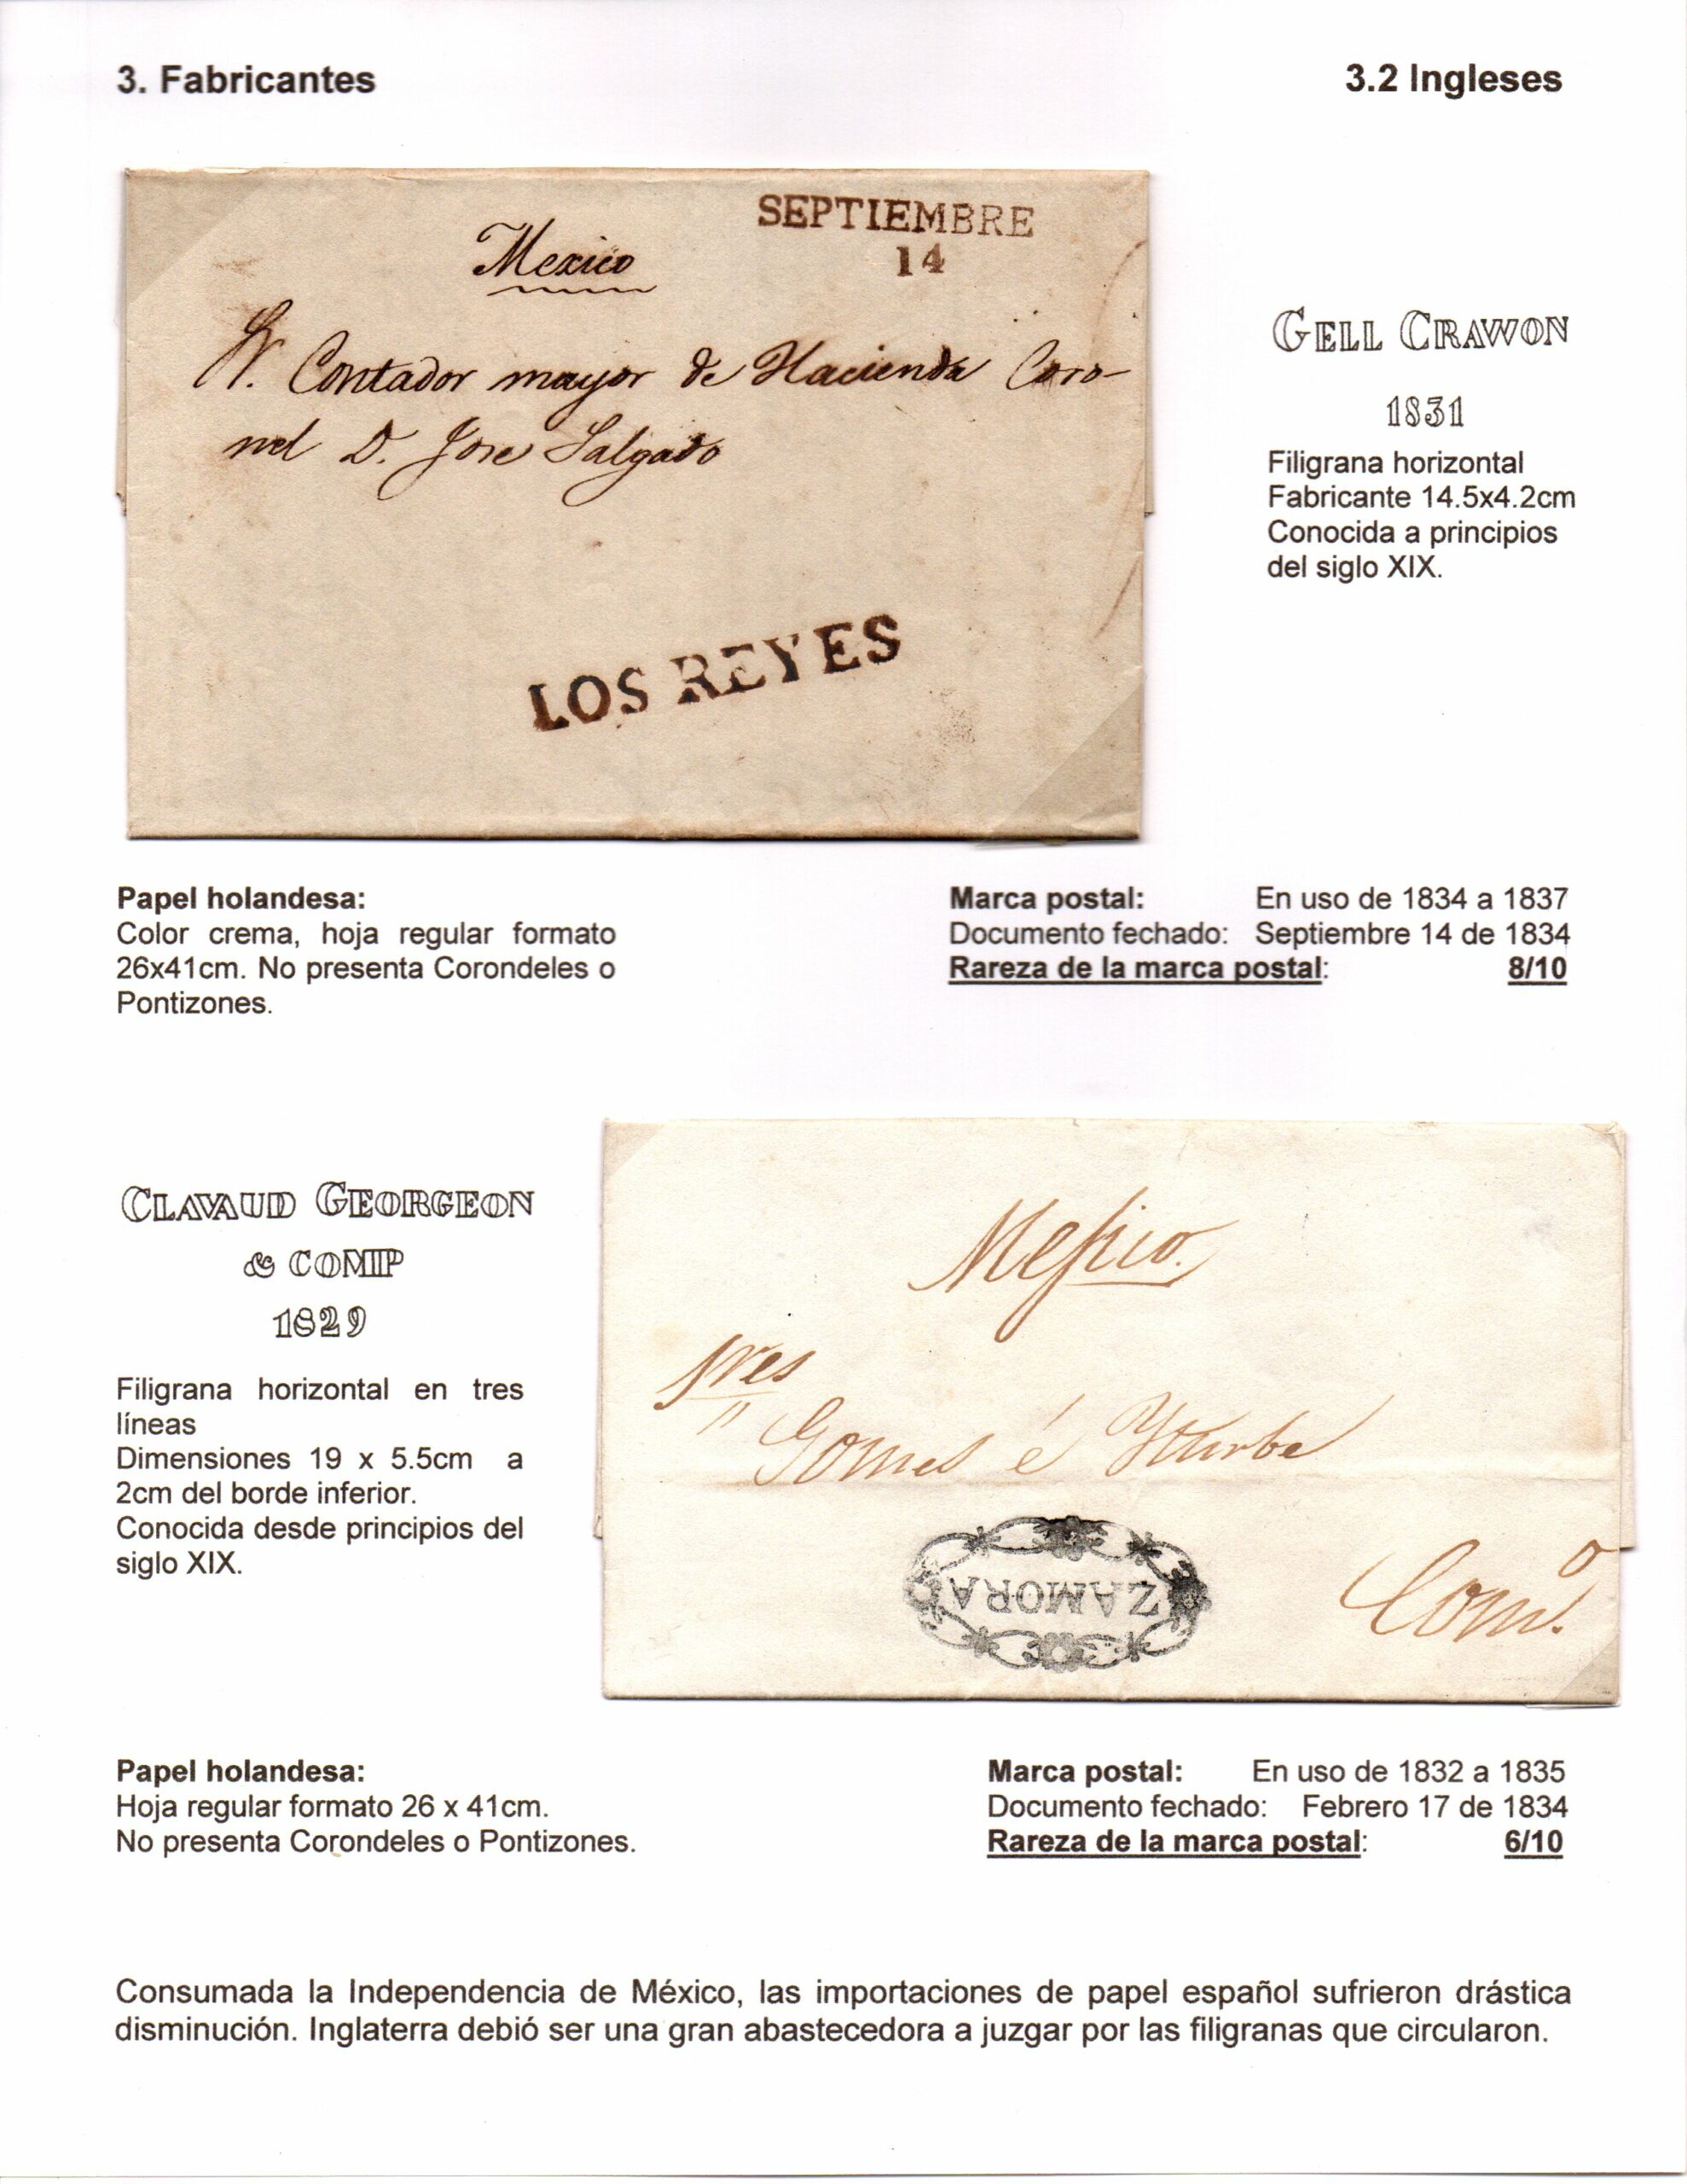 3. Fabricantes
3.2 Ingleses
SEPTIEMBRE
14
Mexico
Sr. Contador mayor de Hacienda Coro-
nel D. Jose Salgado
LOS REYES
GELL CRAWON
1831
Filigrana horizontal
Fabricante 14.5x4.2cm
Conocida a principios
del siglo XIX.
Papel holandesa:
Color crema, hoja regular formato
26x41cm. No presenta Corondeles o
Pontizones.
Marca postal: En uso de 1834 a 1837
Documento fechado: Septiembre 14 de 1834
Rareza de la marca postal: 8/10
CLAVAUD GEORGEON
& COMP
1829
Filigrana horizontal en tres
líneas
Dimensiones 19 x 5.5cm a
2cm del borde inferior.
Conocida desde principios del
siglo XIX.
Mejico.
Sres
Gomes é Yturbe
ZAMORA
Com.º
Papel holandesa:
Hoja regular formato 26 x 41cm.
No presenta Corondeles o Pontizones.
Marca postal: En uso de 1832 a 1835
Documento fechado: Febrero 17 de 1834
Rareza de la marca postal: 6/10
Consumada la Independencia de México, las importaciones de papel español sufrieron drástica
disminución. Inglaterra debió ser una gran abastecedora a juzgar por las filigranas que circularon.